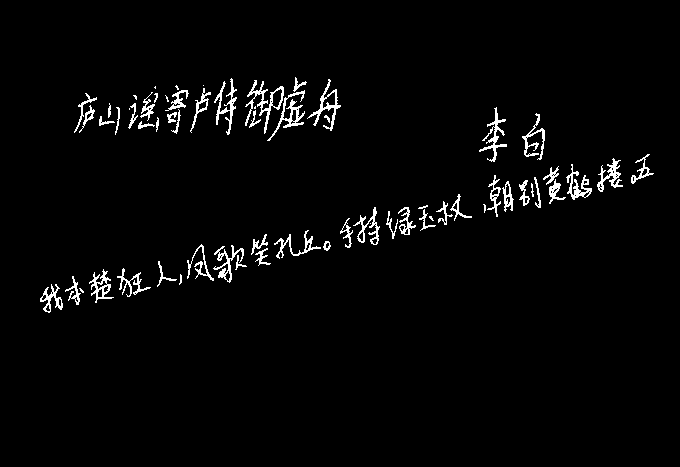 庐山谣寄卢侍御虚舟
李白
我本楚狂人,凤歌笑孔丘。手持绿玉杖,朝别黄鹤楼。五